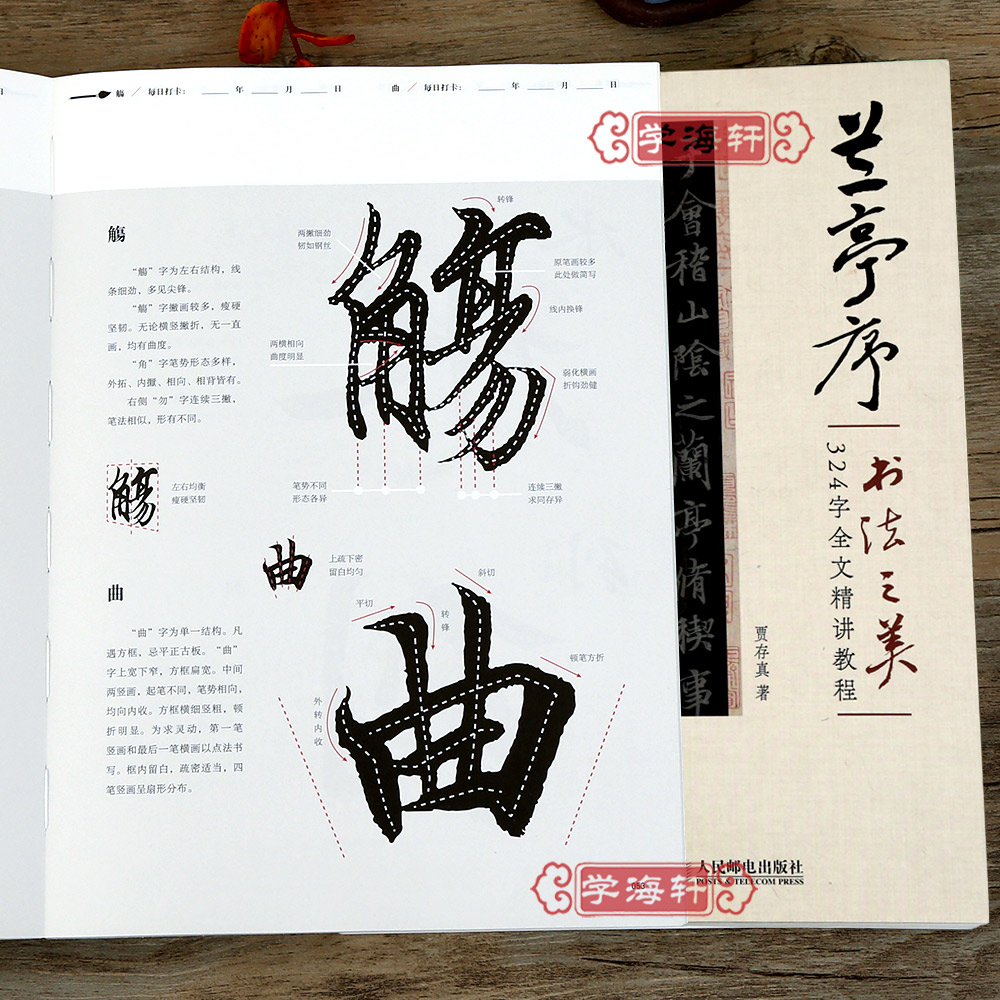 日
觴 / 每日打卡: 年 月 日 曲 / 每日打卡: 年 月 日
觴
“觴”字为左右结构，线
条细劲，多见尖锋。
“觴”字撇画较多，瘦硬
坚韧。无论横竖撇折，无一直
画，均有曲度。
“角”字笔势形态多样，
外拓、内擫、相向、相背皆有。
右侧“勿”字连续三撇，
笔法相似，形有不同。
觴
左右均衡
瘦硬坚韧
转锋
两撇细劲
韧如钢丝
原笔画较多
此处做简写
线内换锋
两横相向
曲度明显
弱化横画
折钩劲健
觴
笔势不同
形态各异
连续三撇
求同存异
曲
“曲”字为单一结构。凡
遇方框，忌平正古板。“曲”
字上宽下窄，方框扁宽。中间
两竖画，起笔不同，笔势相向，
均向内收。方框横细竖粗，顿
折明显。为求灵动，第一笔
竖画和最后一笔横画以点法书
写。框内留白，疏密适当，四
笔竖画呈扇形分布。
曲
上疏下密
留白均匀
斜切
平切
转锋
顿笔方折
外转内收
曲
053
学海轩
学海轩
兰亭序
书法之美
324字全文精讲教程
贾存真 著
于會稽山陰之蘭亭脩稧事
人民邮电出版社
POSTS & TELECOM PRESS